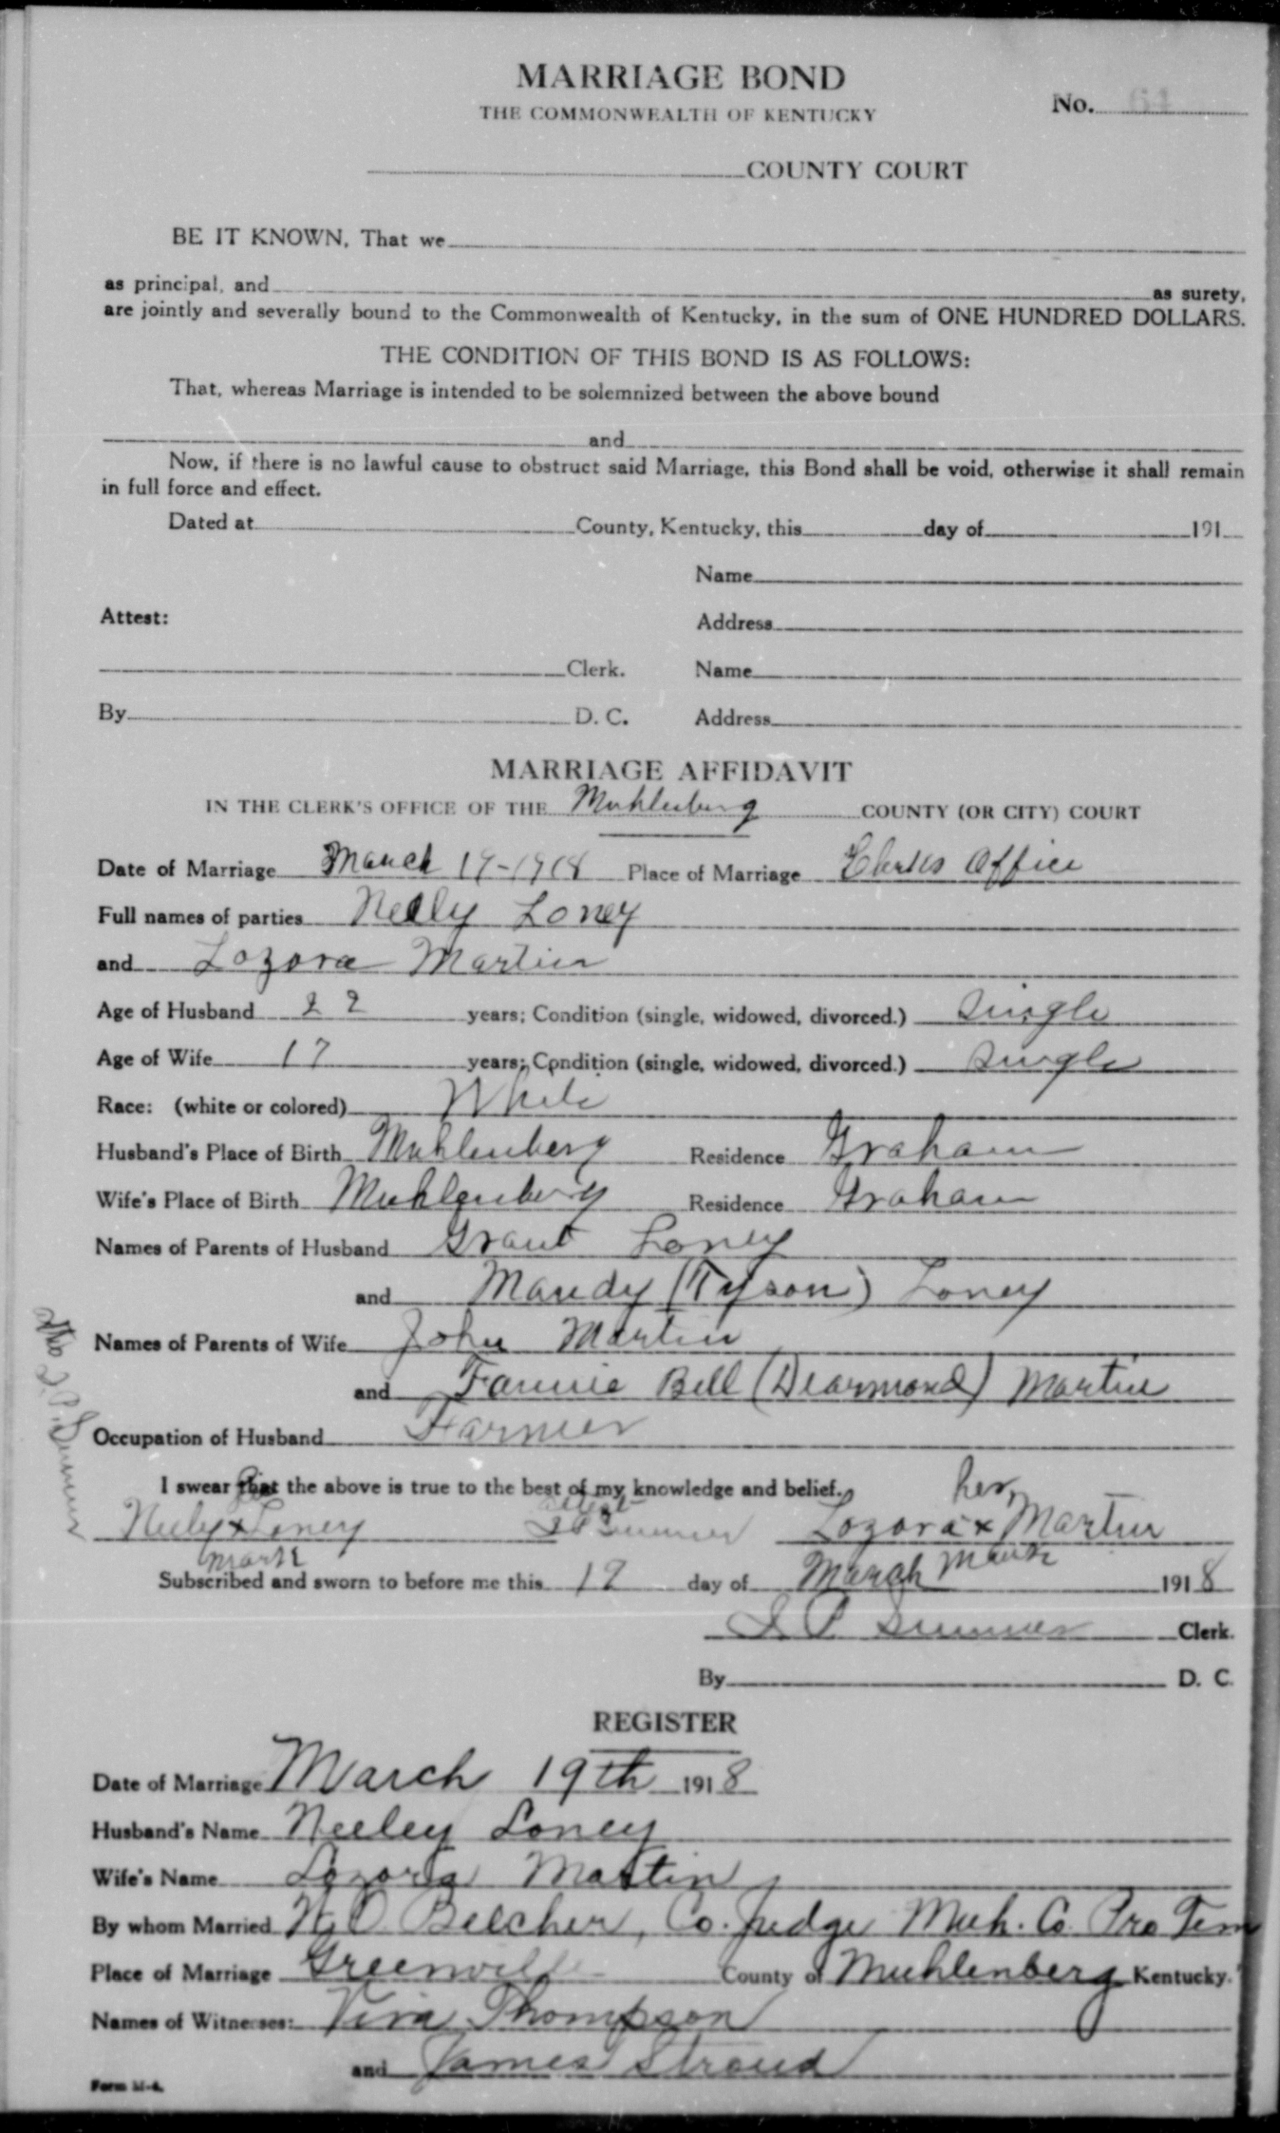 MARRIAGE BOND
THE COMMONWEALTH OF KENTUCKY
No. 64
COUNTY COURT
BE IT KNOWN, That we
as principal, and as surety,
are jointly and severally bound to the Commonwealth of Kentucky, in the sum of ONE HUNDRED DOLLARS.
THE CONDITION OF THIS BOND IS AS FOLLOWS:
That, whereas Marriage is intended to be solemnized between the above bound
and
Now, if there is no lawful cause to obstruct said Marriage, this Bond shall be void, otherwise it shall remain
in full force and effect.
Dated at County, Kentucky, this day of 191
Name
Attest: Address
Clerk. Name
By D. C. Address
MARRIAGE AFFIDAVIT
IN THE CLERK'S OFFICE OF THE Muhlenburg COUNTY (OR CITY) COURT
Date of Marriage March 19-1918 Place of Marriage Clerks Office
Full names of parties Neely Loney
and Lozora Martin
Age of Husband 22 years; Condition (single, widowed, divorced.) Single
Age of Wife 17 years; Condition (single, widowed, divorced.) Single
Race: (white or colored) White
Husband's Place of Birth Muhlenberg Residence Graham
Wife's Place of Birth Muhlenberg Residence Graham
Names of Parents of Husband Grant Loney
and Mandy (Tyson) Loney
Names of Parents of Wife John Martin
and Fannie Bell (Dearmond) Martin
Occupation of Husband Farmer
I swear that the above is true to the best of my knowledge and belief.
his attest her
Neely x Loney Lozora x Martin
mark mark
Subscribed and sworn to before me this 19 day of March 1918
Summer Clerk.
By D. C.
REGISTER
Date of Marriage March 19th 1918
Husband's Name Neeley Loney
Wife's Name Lozora Martin
By whom Married W. O. Belcher, Co. Judge Muh. Co. Pro Tem
Place of Marriage Greenville County of Muhlenberg Kentucky.
Names of Witnesses: Viva Thompson
and James Stroud
Form M-4.